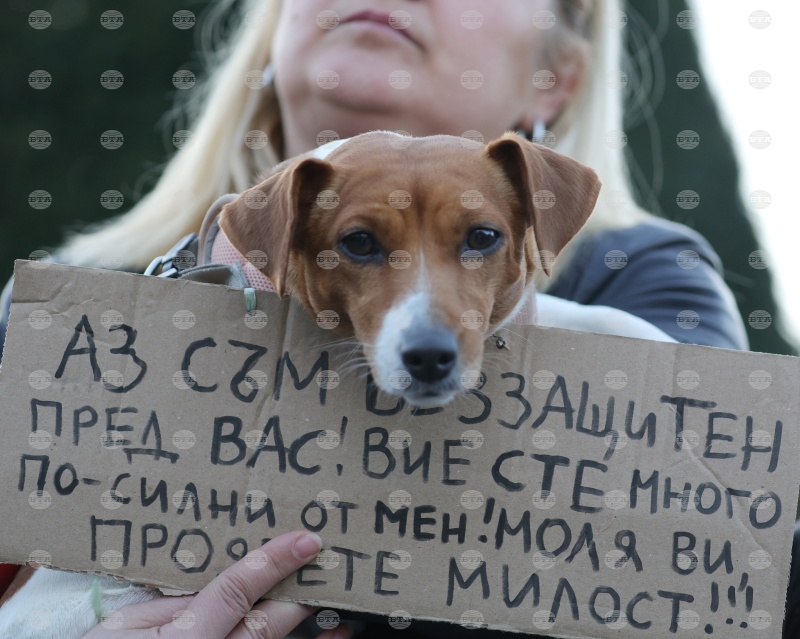 АЗ СЪМ БЕЗЗАЩИТЕН
ПРЕД ВАС! ВИЕ СТЕ МНОГО
ПО-СИЛНИ ОТ МЕН! МОЛЯ ВИ
ПРОЯВЕТЕ МИЛОСТ!!!